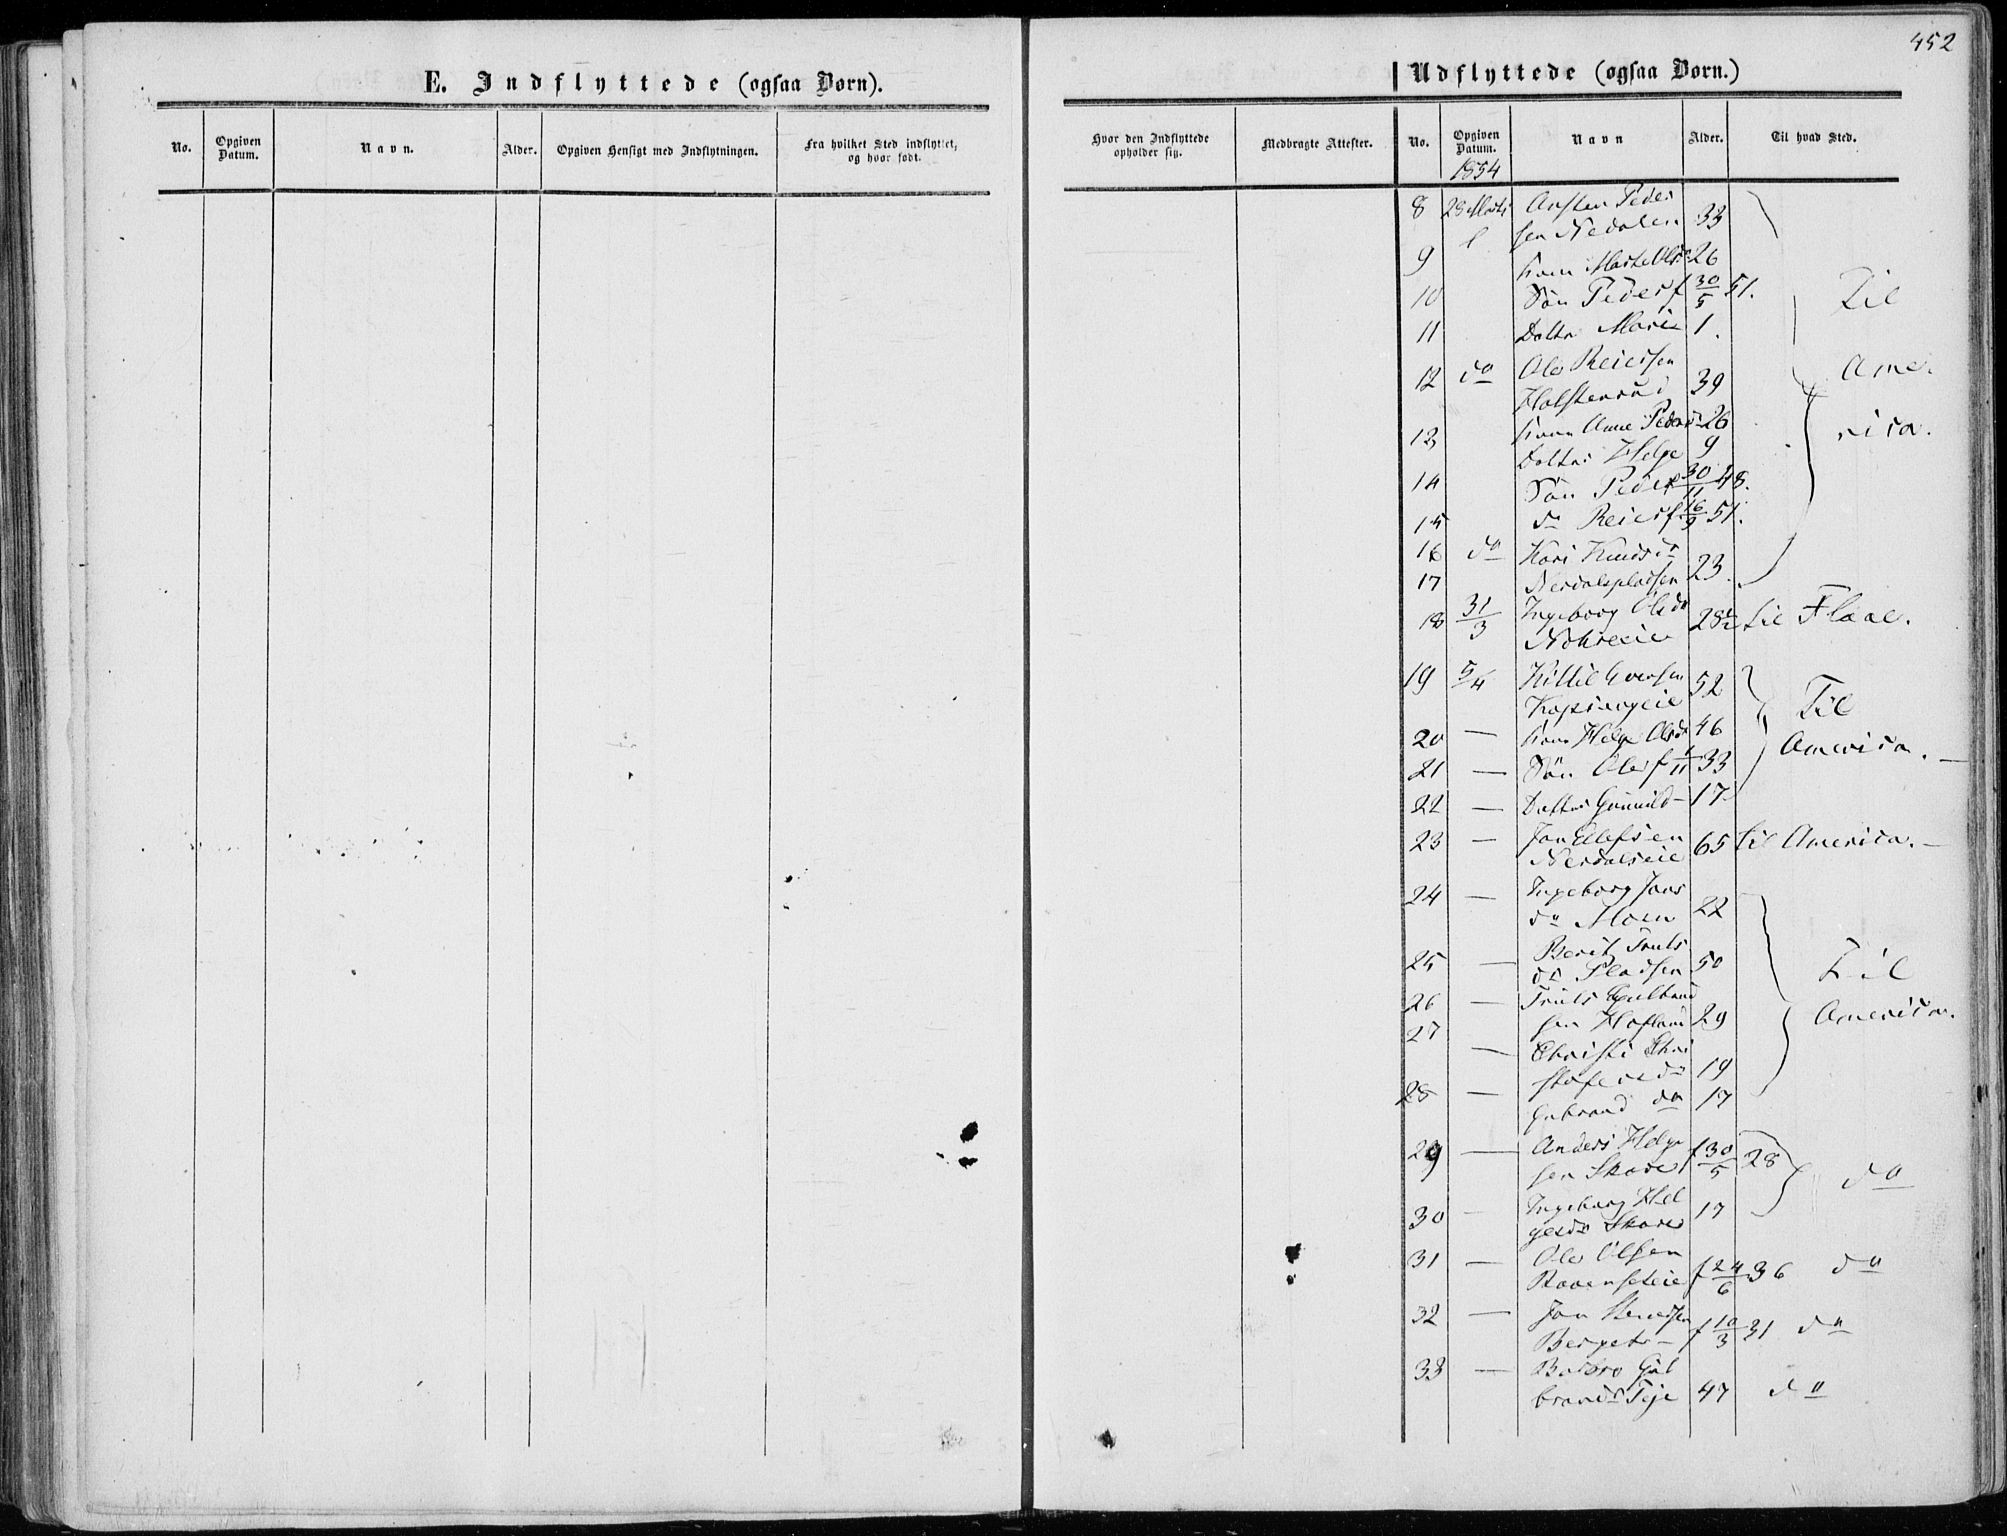 452
E. Indflyttede (ogsaa Børn).
No.
Opgiven Datum.
Navn.
Alder.
Opgiven Hensigt med Indflytningen.
Fra hvilket Sted indflyttet, og hvor født.
Udflyttede (ogsaa Børn.)
Hvor den Indflyttede opholder sig.
Medbragte Attester.
No.
Opgiven Datum.
Navn
Alder.
Til hvad Sted.
1854
8 28 Marts Arsten Peder
sen Nedalen 33
9 Marte Ols 26
10 Søn Peder f 30/5 51. Til
11 Dattr Marie 1.
12 do Ole Reiersen Ame-
Halstensrud 39
13 Anne Peders 26 rica.
Datter Helge 9
14 Søn Peder f 30/11 48.
15 do Reier f 16/9 51.
16 do Kari Knudsdr
17 Nerdalspladsen 23
18 31/3 Ingeborg Olsdr 28½ til Flaae.
19 5/4 Kittil Iversen 52 Til
20 — Helge Olsdr 46 America. —
21 — Søn Ole f 33
22 — Datter Gunnild 17
23 — Jon Ellefsen 65 til America. —
Nerdalseie
24 — Ingeborg Jons
dr Moen 22
25 — Berit Truls
dr Pladsen 50 Til
26 — Truls Gulbrand
27 sen 29 America.
— Christi Chri
stofersdr 19
28 — Gubrand do 17
29 — Anders Helge f 30/5 28
sen Skare do
30 — Ingeborg Hel
gesdr Skare 17
31 — Ole Olsen
f 24/6 36 do
32 — Jon
Berget f 10/3 31 do
33 — Barbro Gul
brands Teje 47 do